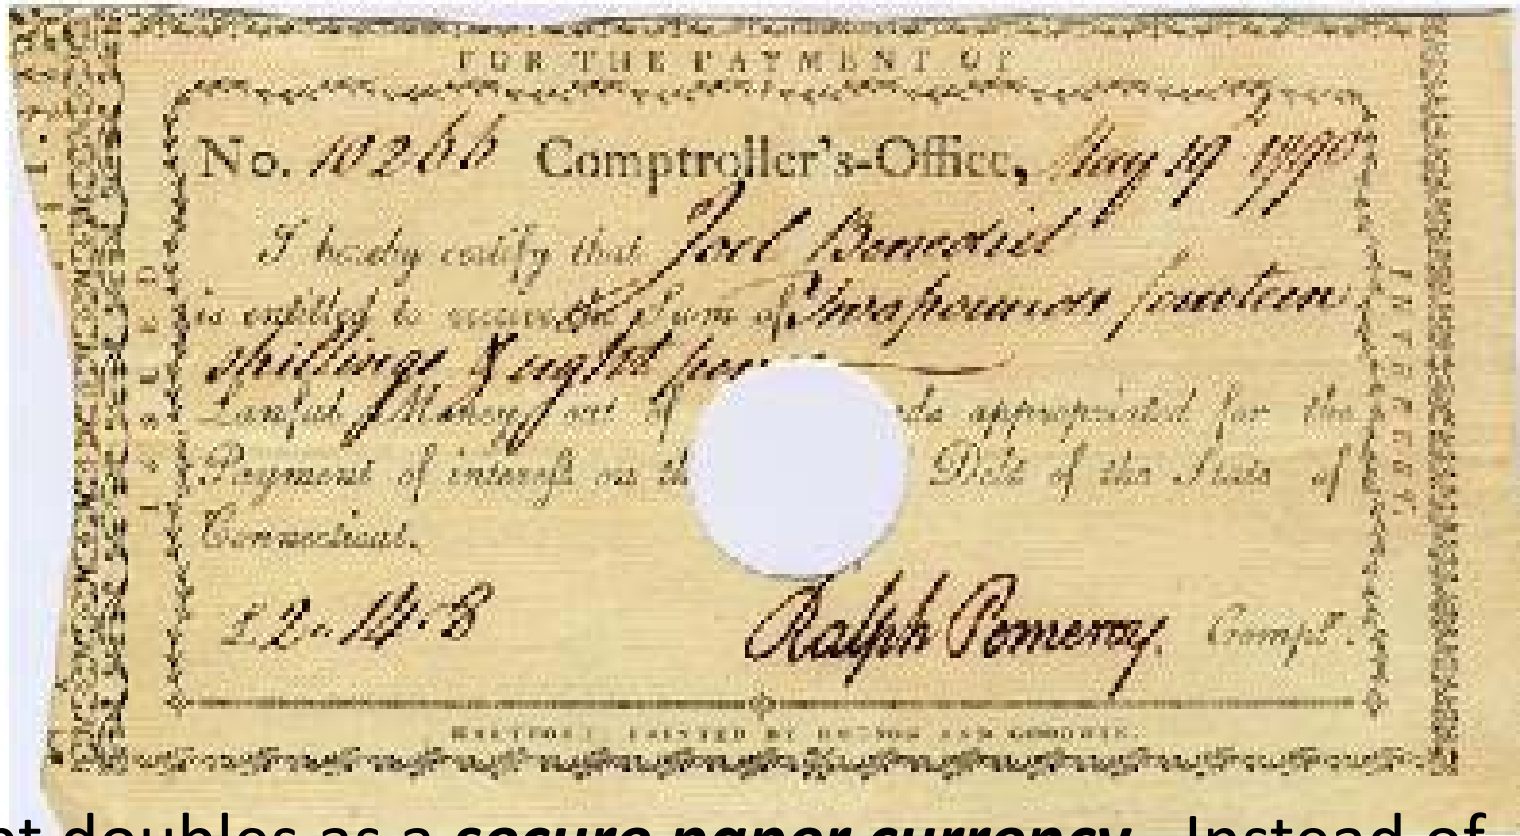 FOR THE PAYMENT OF
No. 10266 Comptroller's-Office, May 19th 1790
I hereby certify that Joel Benedict
is entitled to receive the Sum of Two pounds fourteen
shillings & eight
Lawful Money, out of appropriated for the
Payment of interest on Debt of the State of
Connecticut.
£2. 14. 8
Ralph Pomeroy. Compt.
HARTFORD: PRINTED BY HUDSON AND GOODWIN.
INTEREST
doubles as a secure paper currency. Instead of